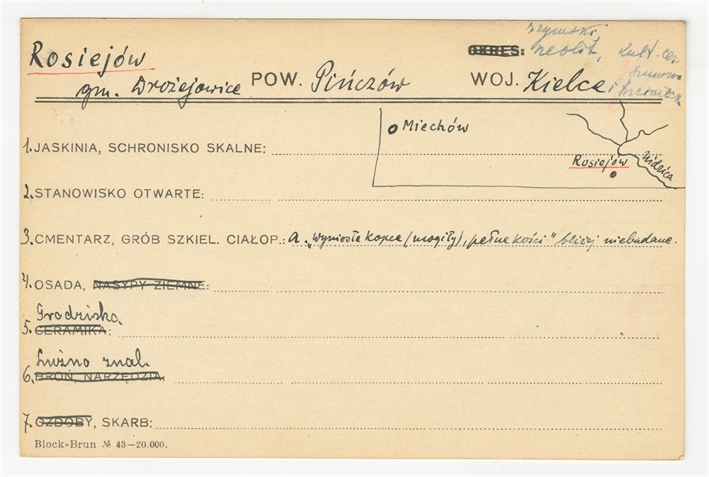 rzymski,
Rosiejów OKRES: neolit, kult. cer.
gm. Drożejowice POW. Pińczów WOJ. Kielce i
Miechów
1. JASKINIA, SCHRONISKO SKALNE:
Rosiejów Nidzica
2. STANOWISKO OTWARTE:
3. CMENTARZ, GRÓB SZKIEL. CIAŁOP.: a. „wyniosłe kopce (mogiły), pełne kości" bliżej niebadane.
4. OSADA, NASYPY ZIEMNE:
Grodzisko.
5. CERAMIKA:
Luźno znal.
6. BROŃ, NARZĘDZIA,
7. OZDOBY, SKARB:
Block-Brun № 43—20.000.